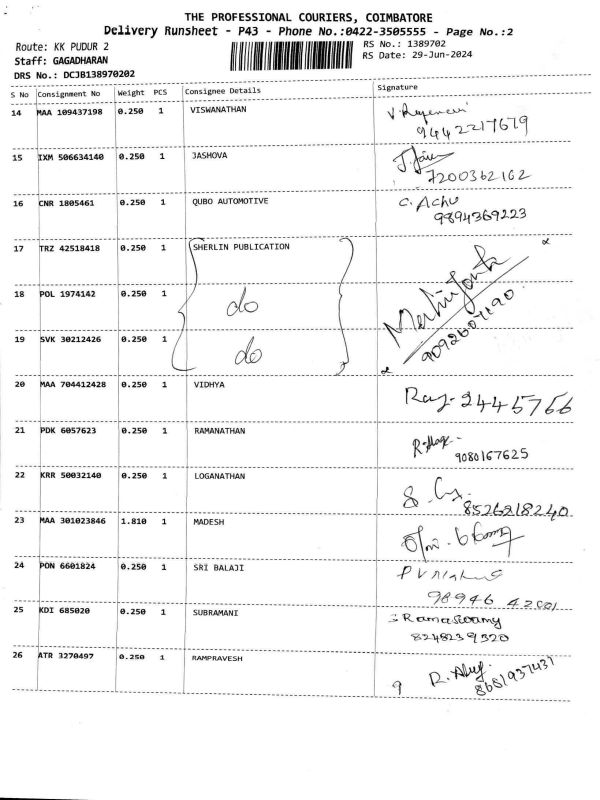 THE PROFESSIONAL COURIERS, COIMBATORE
Delivery Runsheet - P43 - Phone No.:0422-3505555 - Page No.:2
Route: KK PUDUR 2
RS No.: 1389702
Staff: GAGADHARAN
RS Date: 29-Jun-2024
DRS No.: DCJB138970202
S No Consignment No Weight PCS Consignee Details Signature
14 MAA 109437198 0.250 1 VISWANATHAN
9442217679
15 IXM 506634140 0.250 1 JASHOVA
7200362162
16 CNR 1805461 0.250 1 QUBO AUTOMOTIVE C. Achu
9894369223
17 TRZ 42518418 0.250 1 SHERLIN PUBLICATION
18 POL 1974142 0.250 1 do
19 SVK 30212426 0.250 1 do
20 MAA 704412428 0.250 1 VIDHYA Raj- 2445766
21 PDK 6057623 0.250 1 RAMANATHAN
9080167625
22 KRR 50032140 0.250 1 LOGANATHAN
8526218240
23 MAA 301023846 1.810 1 MADESH
24 PON 6601824 0.250 1 SRI BALAJI
98946
25 KDI 685020 0.250 1 SUBRAMANI S Ramaswamy
8248239320
26 ATR 3270497 0.250 1 RAMPRAVESH
9 8681937431